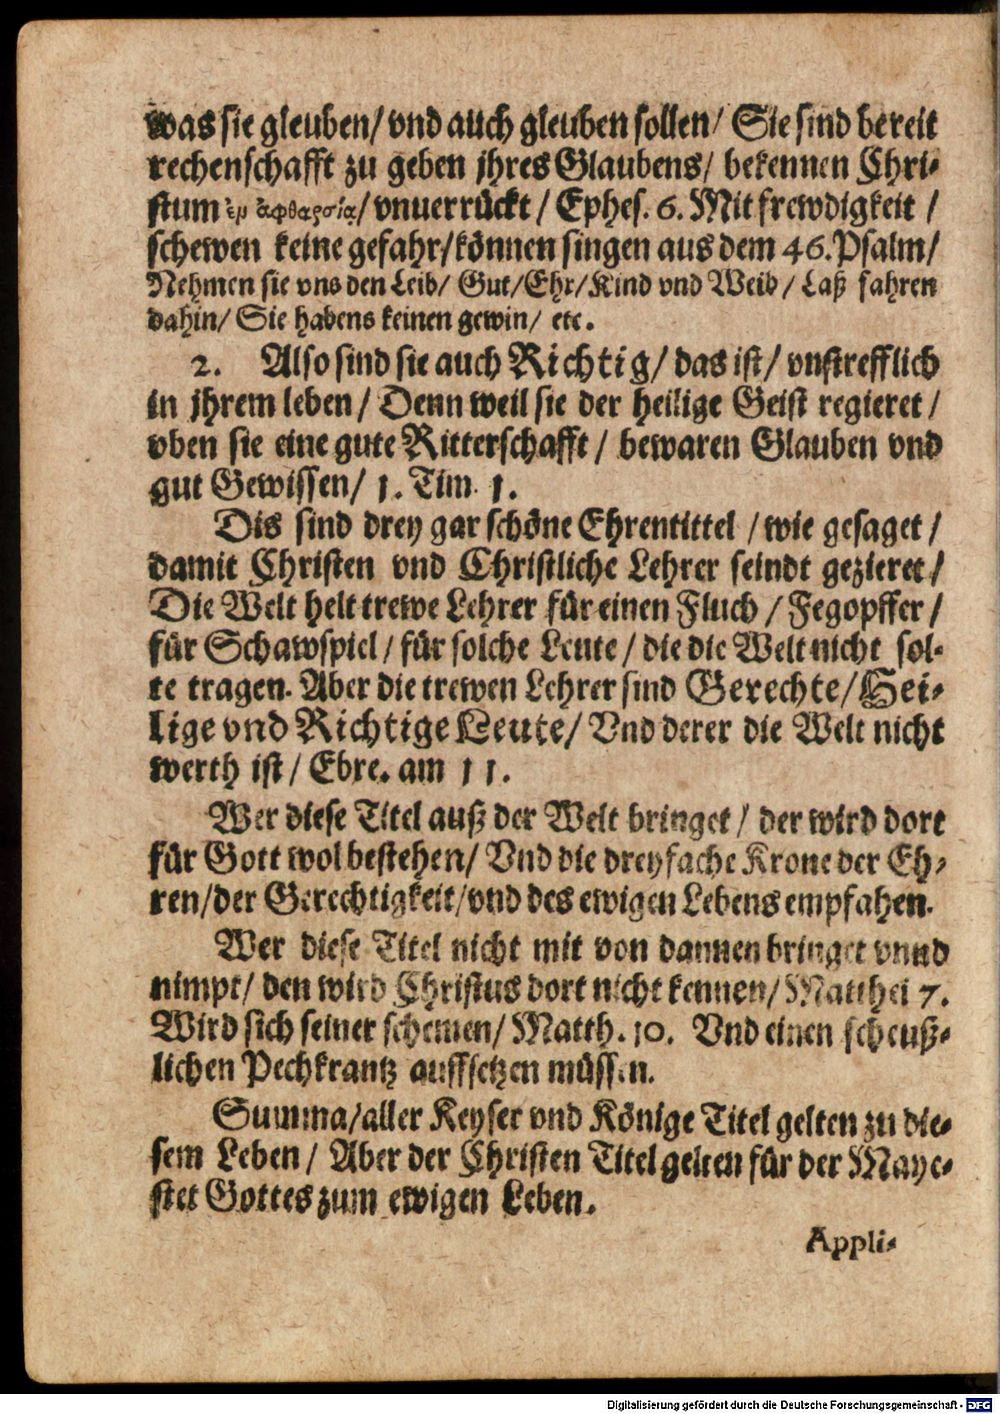 was sie gleuben/ vnd auch gleuben sollen/ Sie sind bereit
rechenschafft zu geben jhres Glaubens/ bekennen Chri-
stum ἐν ἀφθαρσίᾳ/ vnuerrückt / Ephes. 6. Mit frewdigkeit /
schewen keine gefahr/ können singen aus dem 46. Psalm/
Nehmen sie vns den Leib/ Gut/ Ehr/ Kind vnd Weib / Laß fahren
dahin/ Sie habens keinen gewin/ etc.
2. Also sind sie auch Richtig/ das ist/ vnstrefflich
in jhrem leben / Denn weil sie der heilige Geist regieret /
vben sie eine gute Ritterschafft / bewaren Glauben vnd
gut Gewissen/ 1. Tim. 1.
Dis sind drey gar schöne Ehrentittel / wie gesaget /
damit Christen vnd Christliche Lehrer seindt gezieret /
Die Welt helt trewe Lehrer für einen Fluch / Fegopffer /
für Schawspiel / für solche Leute / die die Welt nicht sol-
te tragen. Aber die trewen Lehrer sind Gerechte/ Hei-
lige vnd Richtige Leute/ Vnd derer die Welt nicht
werth ist / Ebre. am 11.
Wer diese Titel auß der Welt bringet / der wird dort
für Gott wol bestehen/ Vnd die dreyfache Krone der Eh-
ren/ der Gerechtigkeit/ vnd des ewigen Lebens empfahen.
Wer diese Titel nicht mit von dannen bringet vnnd
nimpt/ den wird Christus dort nicht kennen/ Matthei 7.
Wird sich seiner schemen/ Matth. 10. Vnd einen scheuß-
lichen Pechkrantz auffsetzen müssen.
Summa/ aller Keyser vnd Könige Titel gelten zu die-
sem Leben / Aber der Christen Titel gelten für der Maye-
stet Gottes zum ewigen Leben.
Appli-
Digitalisierung gefördert durch die Deutsche Forschungsgemeinschaft - DFG